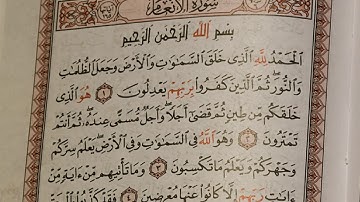 سُورَةُ الْأَنْعَامِ
بِسْمِ اللَّهِ الرَّحْمَٰنِ الرَّحِيمِ
الْحَمْدُ لِلَّهِ الَّذِي خَلَقَ السَّمَاوَاتِ وَالْأَرْضَ وَجَعَلَ الظُّلُمَاتِ
وَالنُّورَ ۖ ثُمَّ الَّذِينَ كَفَرُوا بِرَبِّهِمْ يَعْدِلُونَ ١ هُوَ الَّذِي
خَلَقَكُمْ مِنْ طِينٍ ثُمَّ قَضَىٰ أَجَلًا ۖ وَأَجَلٌ مُسَمًّى عِنْدَهُ ۖ ثُمَّ أَنْتُمْ
تَمْتَرُونَ ٢ وَهُوَ اللَّهُ فِي السَّمَاوَاتِ وَفِي الْأَرْضِ ۖ يَعْلَمُ سِرَّكُمْ
وَجَهْرَكُمْ وَيَعْلَمُ مَا تَكْسِبُونَ ٣ وَمَا تَأْتِيهِمْ مِنْ آيَةٍ مِنْ
آيَاتِ رَبِّهِمْ إِلَّا كَانُوا عَنْهَا مُعْرِضِينَ ٤ فَقَدْ كَذَّبُوا